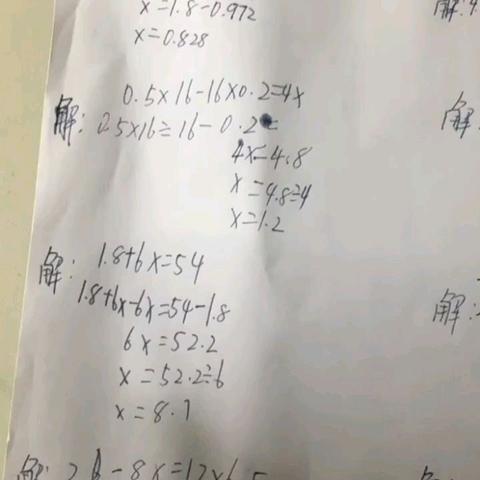 x=1.8-0.972
x=0.828
0.5×16-16×0.2=4x
解: 0.5×16=16-0.2
4x=4.8
x=4.8÷4
x=1.2
解: 1.8+6x=54
1.8+6x-6x=54-1.8
6x=52.2
x=52.2÷6
x=8.7
解:
-8x=12×6.5
解:
解:
解: